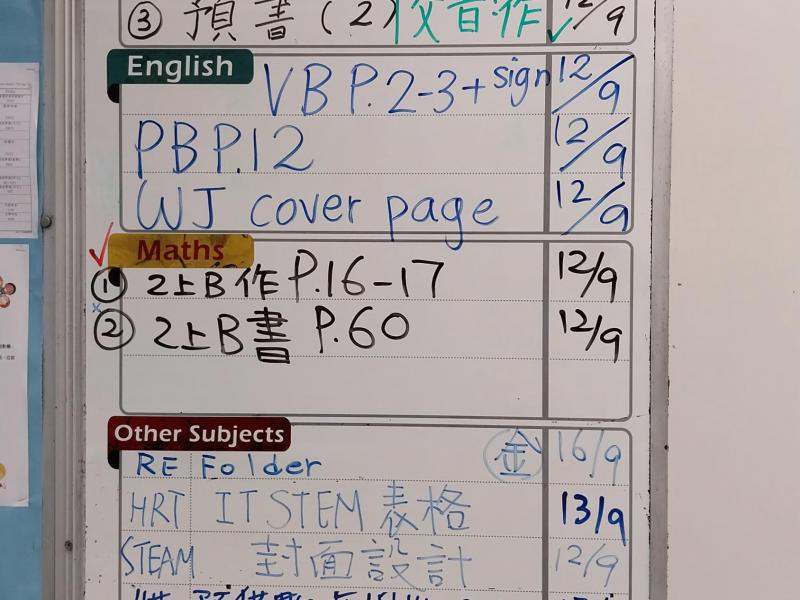 ③ 預書(2) 12/9
English
VB P.2-3+sign 12/9
PB P.12 12/9
WJ cover page 12/9
Maths
① 2上B作 P.16-17 12/9
② 2上B書 P.60 12/9
Other Subjects
RE Folder 金 16/9
HRT IT STEM 表格 13/9
STEAM 封面設計 12/9